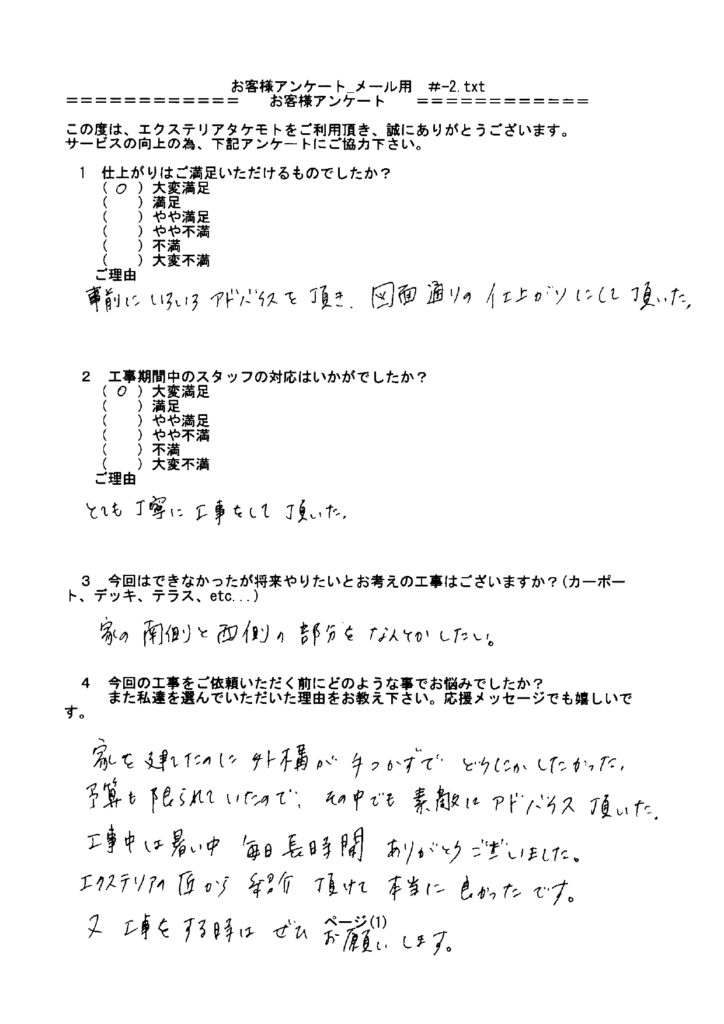 お客様アンケート_メール用　＃-2.txt
＝＝＝＝＝＝＝＝＝＝＝＝　　お客様アンケート　　＝＝＝＝＝＝＝＝＝＝＝＝
この度は、エクステリアタケモトをご利用頂き、誠にありがとうございます。
サービスの向上の為、下記アンケートにご協力下さい。
１　仕上がりはご満足いただけるものでしたか？
（ ○ ）大変満足
（　　）満足
（　　）やや満足
（　　）やや不満
（　　）不満
（　　）大変不満
ご理由
事前にいろいろアドバイスを頂き、図面通りの仕上がりにして頂いた。
２　工事期間中のスタッフの対応はいかがでしたか？
（ ○ ）大変満足
（　　）満足
（　　）やや満足
（　　）やや不満
（　　）不満
（　　）大変不満
ご理由
とても丁寧に工事をして頂いた。
３　今回はできなかったが将来やりたいとお考えの工事はございますか？(カーポー
ト、デッキ、テラス、etc...)
家の南側と西側の部分をなんとかしたい。
４　今回の工事をご依頼いただく前にどのような事でお悩みでしたか？
また私達を選んでいただいた理由をお教え下さい。応援メッセージでも嬉しいで
す。
家を建てたのに外構が手つかずでどうにかしたかった。
予算も限られていたので、その中でも素敵にアドバイス頂いた。
工事中は暑い中 毎日長時間 ありがとうございました。
エクステリアの匠から紹介頂けて本当に良かったです。
又 工事をする時は ぜひ お願いします。
ページ(1)